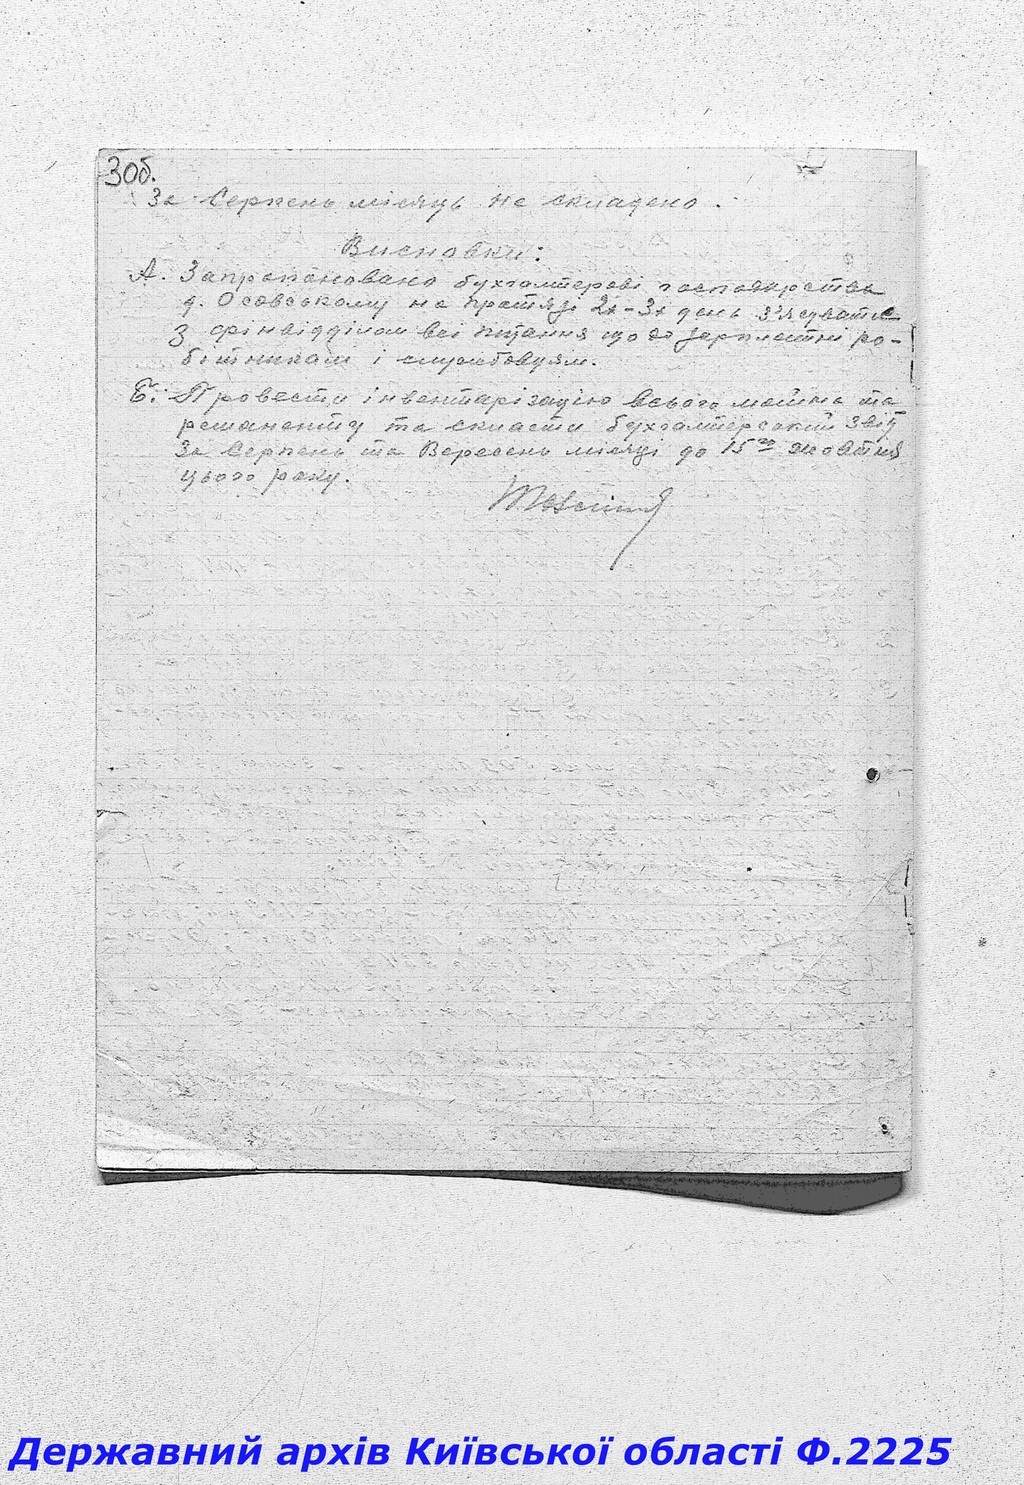 3об.
За Серпень місяць не складено.
Висновки:
А. Запропановано бухгалтерові господарства
д. Осовському на протязі 2х-3х день з'ясувати
з фінвідділом всі питання що до зарплатні ро-
бітникам і службовцям.
Б. Провести інвентарізацію всього майна та
реманенту та скласти бухгалтерський звіт
За Серпень та Вересень місяці до 15го жовтня
цього року.
Державний архів Київської області Ф.2225